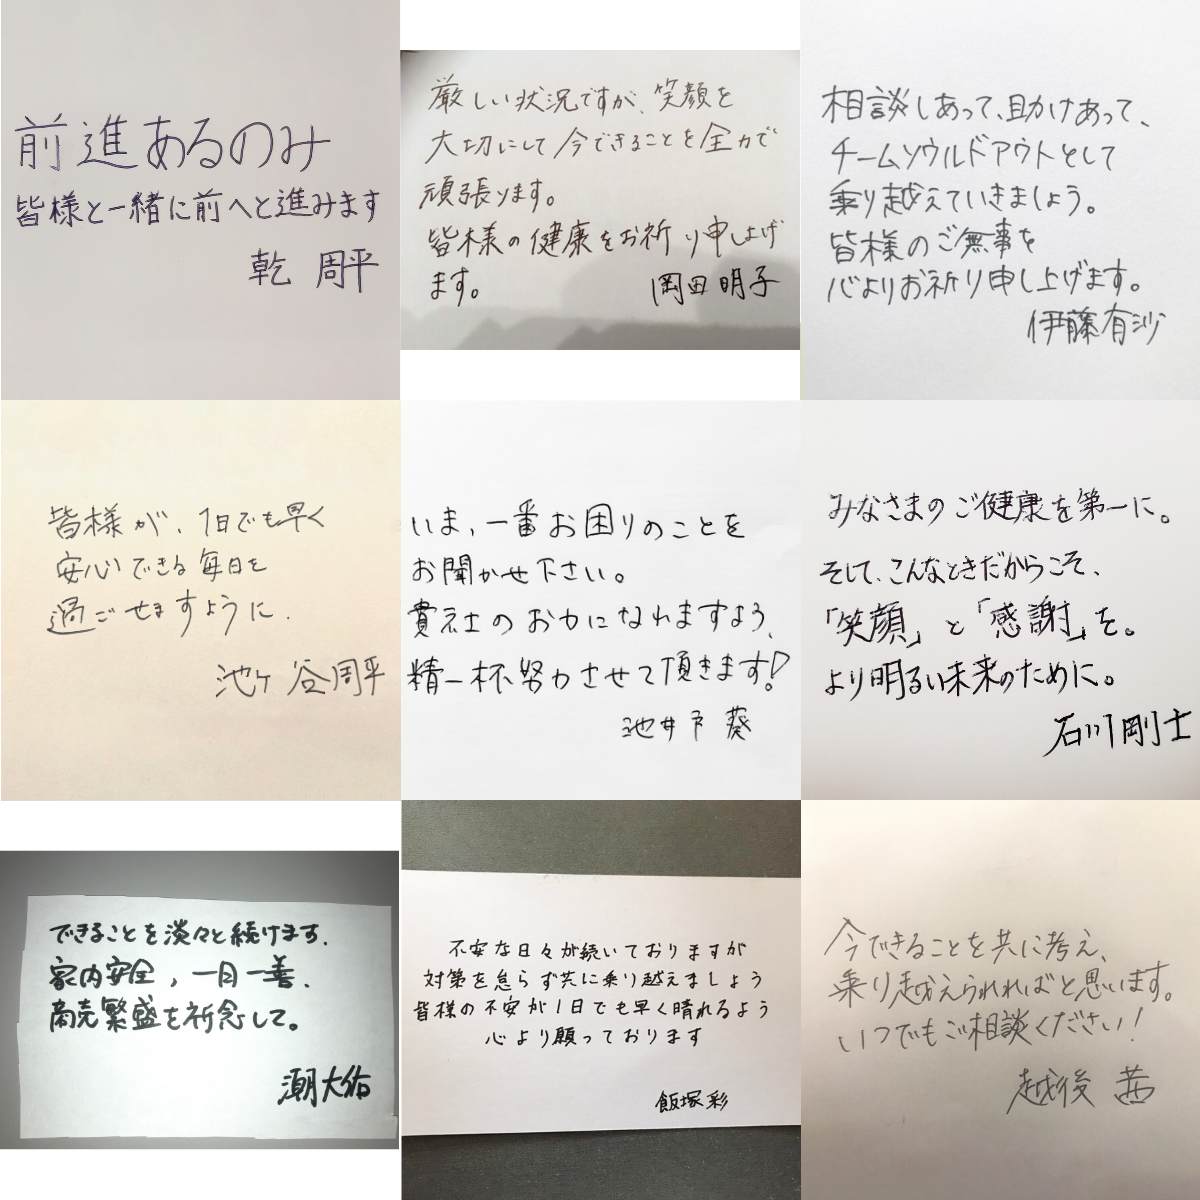 前進あるのみ
皆様と一緒に前へと進みます
乾 周平
厳しい状況ですが、笑顔を
大切にして今できることを全力で
頑張ります。
皆様の健康をお祈り申し上げ
ます。
岡田明子
相談しあって、助けあって、
チームソウルドアウトとして
乗り越えていきましょう。
皆様のご無事を
心よりお祈り申し上げます。
伊藤有沙
皆様が、1日でも早く
安心できる毎日を
過ごせますように.
池ヶ谷周平
いま、一番お困りのことを
お聞かせ下さい。
貴社のお力になれますよう、
精一杯努力させて頂きます!
池井戸 葵
みなさまのご健康を第一に。
そして、こんなときだからこそ、
「笑顔」と「感謝」を。
より明るい未来のために。
石川剛士
できることを淡々と続けます.
家内安全,一日一善.
商売繁盛を祈念して。
潮大佑
不安な日々が続いておりますが
対策を怠らず共に乗り越えましょう
皆様の不安が1日でも早く晴れるよう
心より願っております
飯塚彩
今できることを共に考え、
乗り越えられればと思います。
いつでもご相談ください!
越後 茜